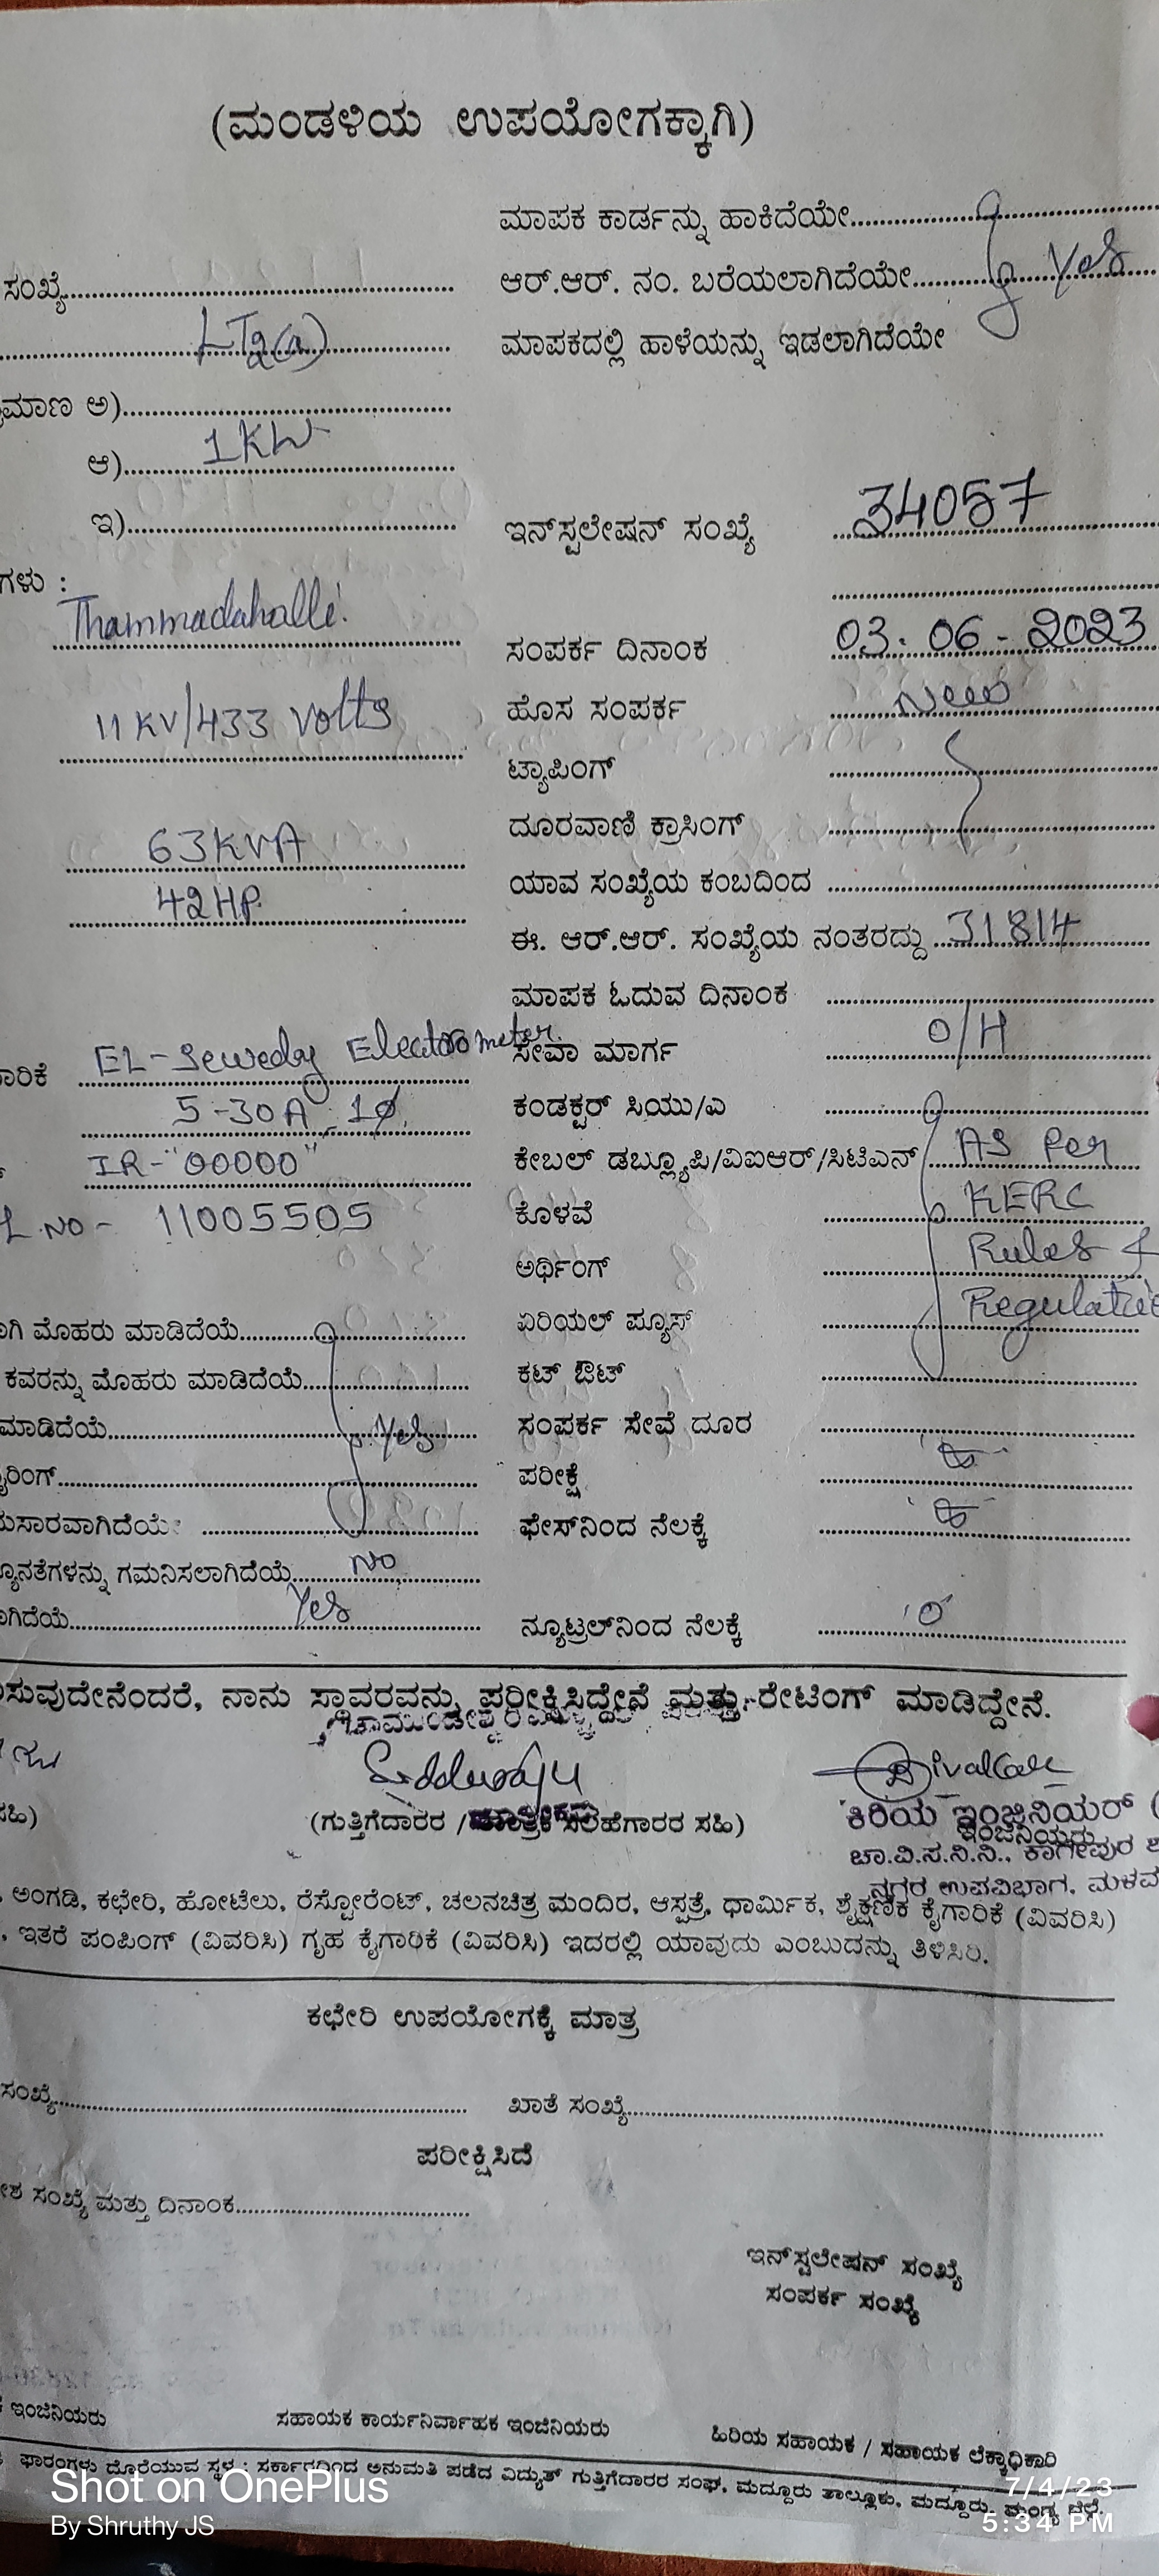 (ಮಂಡಳಿಯ ಉಪಯೋಗಕ್ಕಾಗಿ)
ಮಾಪಕ ಕಾರ್ಡನ್ನು ಹಾಕಿದೆಯೇ
ಸಂಖ್ಯೆ
ಆರ್.ಆರ್. ನಂ. ಬರೆಯಲಾಗಿದೆಯೇ Yes
LT2(a)
ಮಾಪಕದಲ್ಲಿ ಹಾಳೆಯನ್ನು ಇಡಲಾಗಿದೆಯೇ
ಮಾಣ ಅ)
ಆ) 1KW
ಇ)
ಇನ್‌ಸ್ಟಲೇಷನ್ ಸಂಖ್ಯೆ 34057
ಗಳು :
Thammadahalli
ಸಂಪರ್ಕ ದಿನಾಂಕ 03-06-2023
11 KV/433 Volts
ಹೊಸ ಸಂಪರ್ಕ New
ಟ್ಯಾಪಿಂಗ್
ದೂರವಾಣಿ ಕ್ರಾಸಿಂಗ್
63KVA
ಯಾವ ಸಂಖ್ಯೆಯ ಕಂಬದಿಂದ
42HP
ಈ. ಆರ್.ಆರ್. ಸಂಖ್ಯೆಯ ನಂತರದ್ದು 31814
ಮಾಪಕ ಓದುವ ದಿನಾಂಕ
ಾರಿಕೆ EL-Sewedy Electrometer
ಸೇವಾ ಮಾರ್ಗ O/H
5-30A, 1ø.
ಕಂಡಕ್ಟರ್ ಸಿಯು/ಎ
IR-"00000"
ಕೇಬಲ್ ಡಬ್ಲ್ಯೂಪಿ/ವಿಐಆರ್/ಸಿಟಿಎಸ್ AS Per
L.NO- 11005505
ಕೊಳವೆ KERC
ಅರ್ಥಿಂಗ್ Rules &
ಾಗಿ ಮೊಹರು ಮಾಡಿದೆಯೆ
ಏರಿಯಲ್ ಪ್ಯೂಸ್
ಕವರನ್ನು ಮೊಹರು ಮಾಡಿದೆಯೆ
ಕಟ್ ಔಟ್
ಮಾಡಿದೆಯೆ Yes
ಸಂಪರ್ಕ ಸೇವೆ ದೂರ
ೈರಿಂಗ್
ಪರೀಕ್ಷೆ
ುಸಾರವಾಗಿದೆಯೆ
ಫೇಸ್‌ನಿಂದ ನೆಲಕ್ಕೆ
್ಯೂನತೆಗಳನ್ನು ಗಮನಿಸಲಾಗಿದೆಯೆ NO
ಾಗಿದೆಯೆ Yes
ನ್ಯೂಟ್ರಲ್‌ನಿಂದ ನೆಲಕ್ಕೆ 'o'
ಿಸುವುದೇನೆಂದರೆ, ನಾನು ಸ್ಥಾವರವನ್ನು ಪರೀಕ್ಷಿಸಿದ್ದೇನೆ ಮತ್ತು ರೇಟಿಂಗ್ ಮಾಡಿದ್ದೇನೆ.
Siddaraju
ಸಹಿ)
(ಗುತ್ತಿಗೆದಾರರ / ಸಲಹೆಗಾರರ ಸಹಿ)
ಕಿರಿಯ ಇಂಜಿನಿಯರ್ (
ಇಂಜಿನಿಯರು
ಚಾ.ವಿ.ಸ.ನಿ.ನಿ., ಕಾಗೇಪುರ
ನಗರ ಉಪವಿಭಾಗ, ಮಳವ
ಅಂಗಡಿ, ಕಛೇರಿ, ಹೋಟೆಲು, ರೆಸ್ಟೋರೆಂಟ್, ಚಲನಚಿತ್ರ ಮಂದಿರ, ಆಸ್ಪತ್ರೆ, ಧಾರ್ಮಿಕ, ಶೈಕ್ಷಣಿಕ ಕೈಗಾರಿಕೆ (ವಿವರಿಸಿ)
, ಇತರೆ ಪಂಪಿಂಗ್ (ವಿವರಿಸಿ) ಗೃಹ ಕೈಗಾರಿಕೆ (ವಿವರಿಸಿ) ಇದರಲ್ಲಿ ಯಾವುದು ಎಂಬುದನ್ನು ತಿಳಿಸಿರಿ.
ಕಛೇರಿ ಉಪಯೋಗಕ್ಕೆ ಮಾತ್ರ
ಸಂಖ್ಯೆ ಖಾತೆ ಸಂಖ್ಯೆ
ಪರೀಕ್ಷಿಸಿದೆ
ೇಶ ಸಂಖ್ಯೆ ಮತ್ತು ದಿನಾಂಕ
ಇನ್‌ಸ್ಟಲೇಷನ್ ಸಂಖ್ಯೆ
ಸಂಪರ್ಕ ಸಂಖ್ಯೆ
ಇಂಜಿನಿಯರು ಸಹಾಯಕ ಕಾರ್ಯನಿರ್ವಾಹಕ ಇಂಜಿನಿಯರು ಹಿರಿಯ ಸಹಾಯಕ / ಸಹಾಯಕ ಲೆಕ್ಕಾಧಿಕಾರಿ
ಫಾರಂಗಳು ದೊರೆಯುವ ಸ್ಥಳ : ಸರ್ಕಾರದಿಂದ ಅನುಮತಿ ಪಡೆದ ವಿದ್ಯುತ್ ಗುತ್ತಿಗೆದಾರರ ಸಂಘ, ಮದ್ದೂರು ತಾಲ್ಲೂಕು, ಮದ್ದೂರು, ಮಂಡ್ಯ ಜಿಲ್ಲೆ.
Shot on OnePlus
By Shruthy JS
7/4/23
5:34 PM